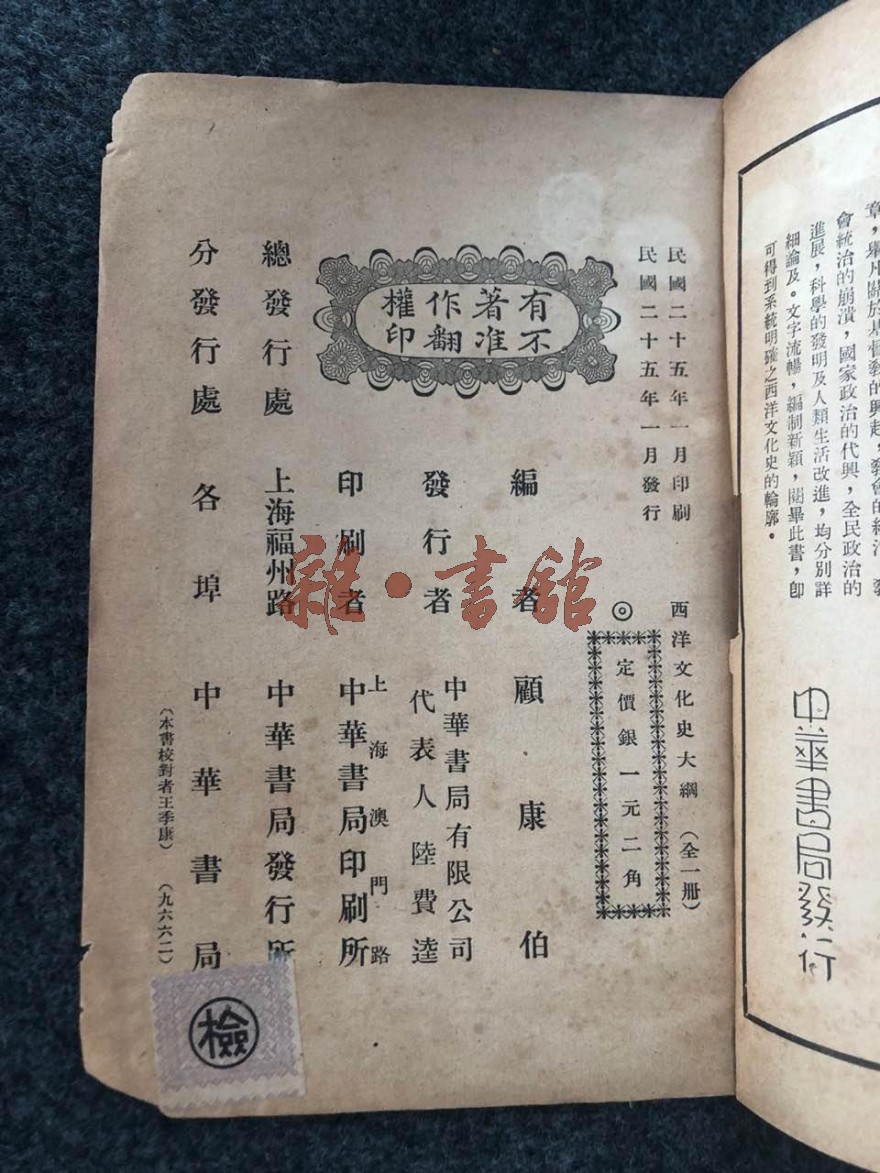 章，舉凡關於基督教的興起，教會的
會統治的崩潰，國家政治的代興，全民政治的
進展，科學的發明及人類生活改進，均分別詳
細論及。文字流暢，編制新穎，閱畢此書，即
可得到系統明確之西洋文化史的輪廓。
中華書局發行
民國二十五年一月印刷
民國二十五年一月發行
西洋文化史大綱（全一冊）
◎定價銀一元二角
有著作權
不准翻印
編者 顧康伯
發行者 中華書局有限公司
代表人陸費逵
印刷者 上海澳門路
中華書局印刷所
總發行處 上海福州路 中華書局發行所
分發行處 各埠 中華書局
（本書校對者王季康）（九六六二）
檢
雜·書館